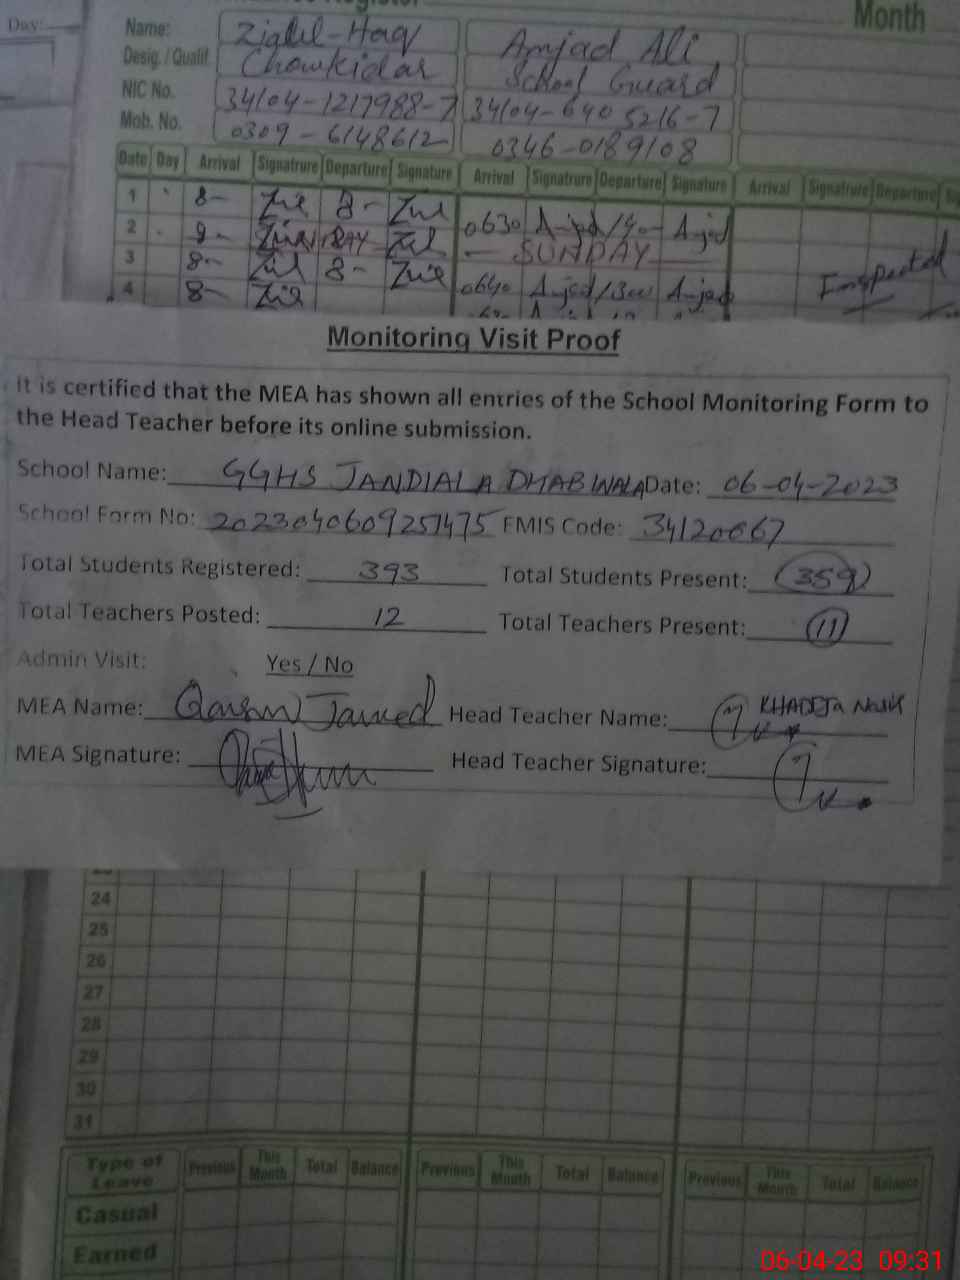 Day:
Month
Name: Ziaul-Haq Amjad Ali
Desig. / Qualif. Chowkidar School Guard
NIC No. 34104-1217988-7 34104-6405216-7
Mob. No. 0309-6148612 0346-0189108
Date Day Arrival Signatrure Departure Signature Arrival Signatrure Departure Signature Arrival Signatrure Departure
1 8- 8- 0630 Amjad Amjad
2 SUNDAY
3 8- 8- 0640 Amjad Amjad Inspected
4 8-
Monitoring Visit Proof
It is certified that the MEA has shown all entries of the School Monitoring Form to
the Head Teacher before its online submission.
School Name: GGHS JANDIALA DHABWALA Date: 06-04-2023
School Form No: 2023040609251475 EMIS Code: 34120067
Total Students Registered: 393 Total Students Present: 359
Total Teachers Posted: 12 Total Teachers Present: 11
Admin Visit: Yes / No
MEA Name: Javed Head Teacher Name: KHADEJA Nasir
MEA Signature: Head Teacher Signature:
24
25
26
27
28
29
30
31
Type of Leave Previous This Month Total Balance Previous This Month Total Balance Previous This Month Total Balance
Casual
Earned
06-04-23 09:31